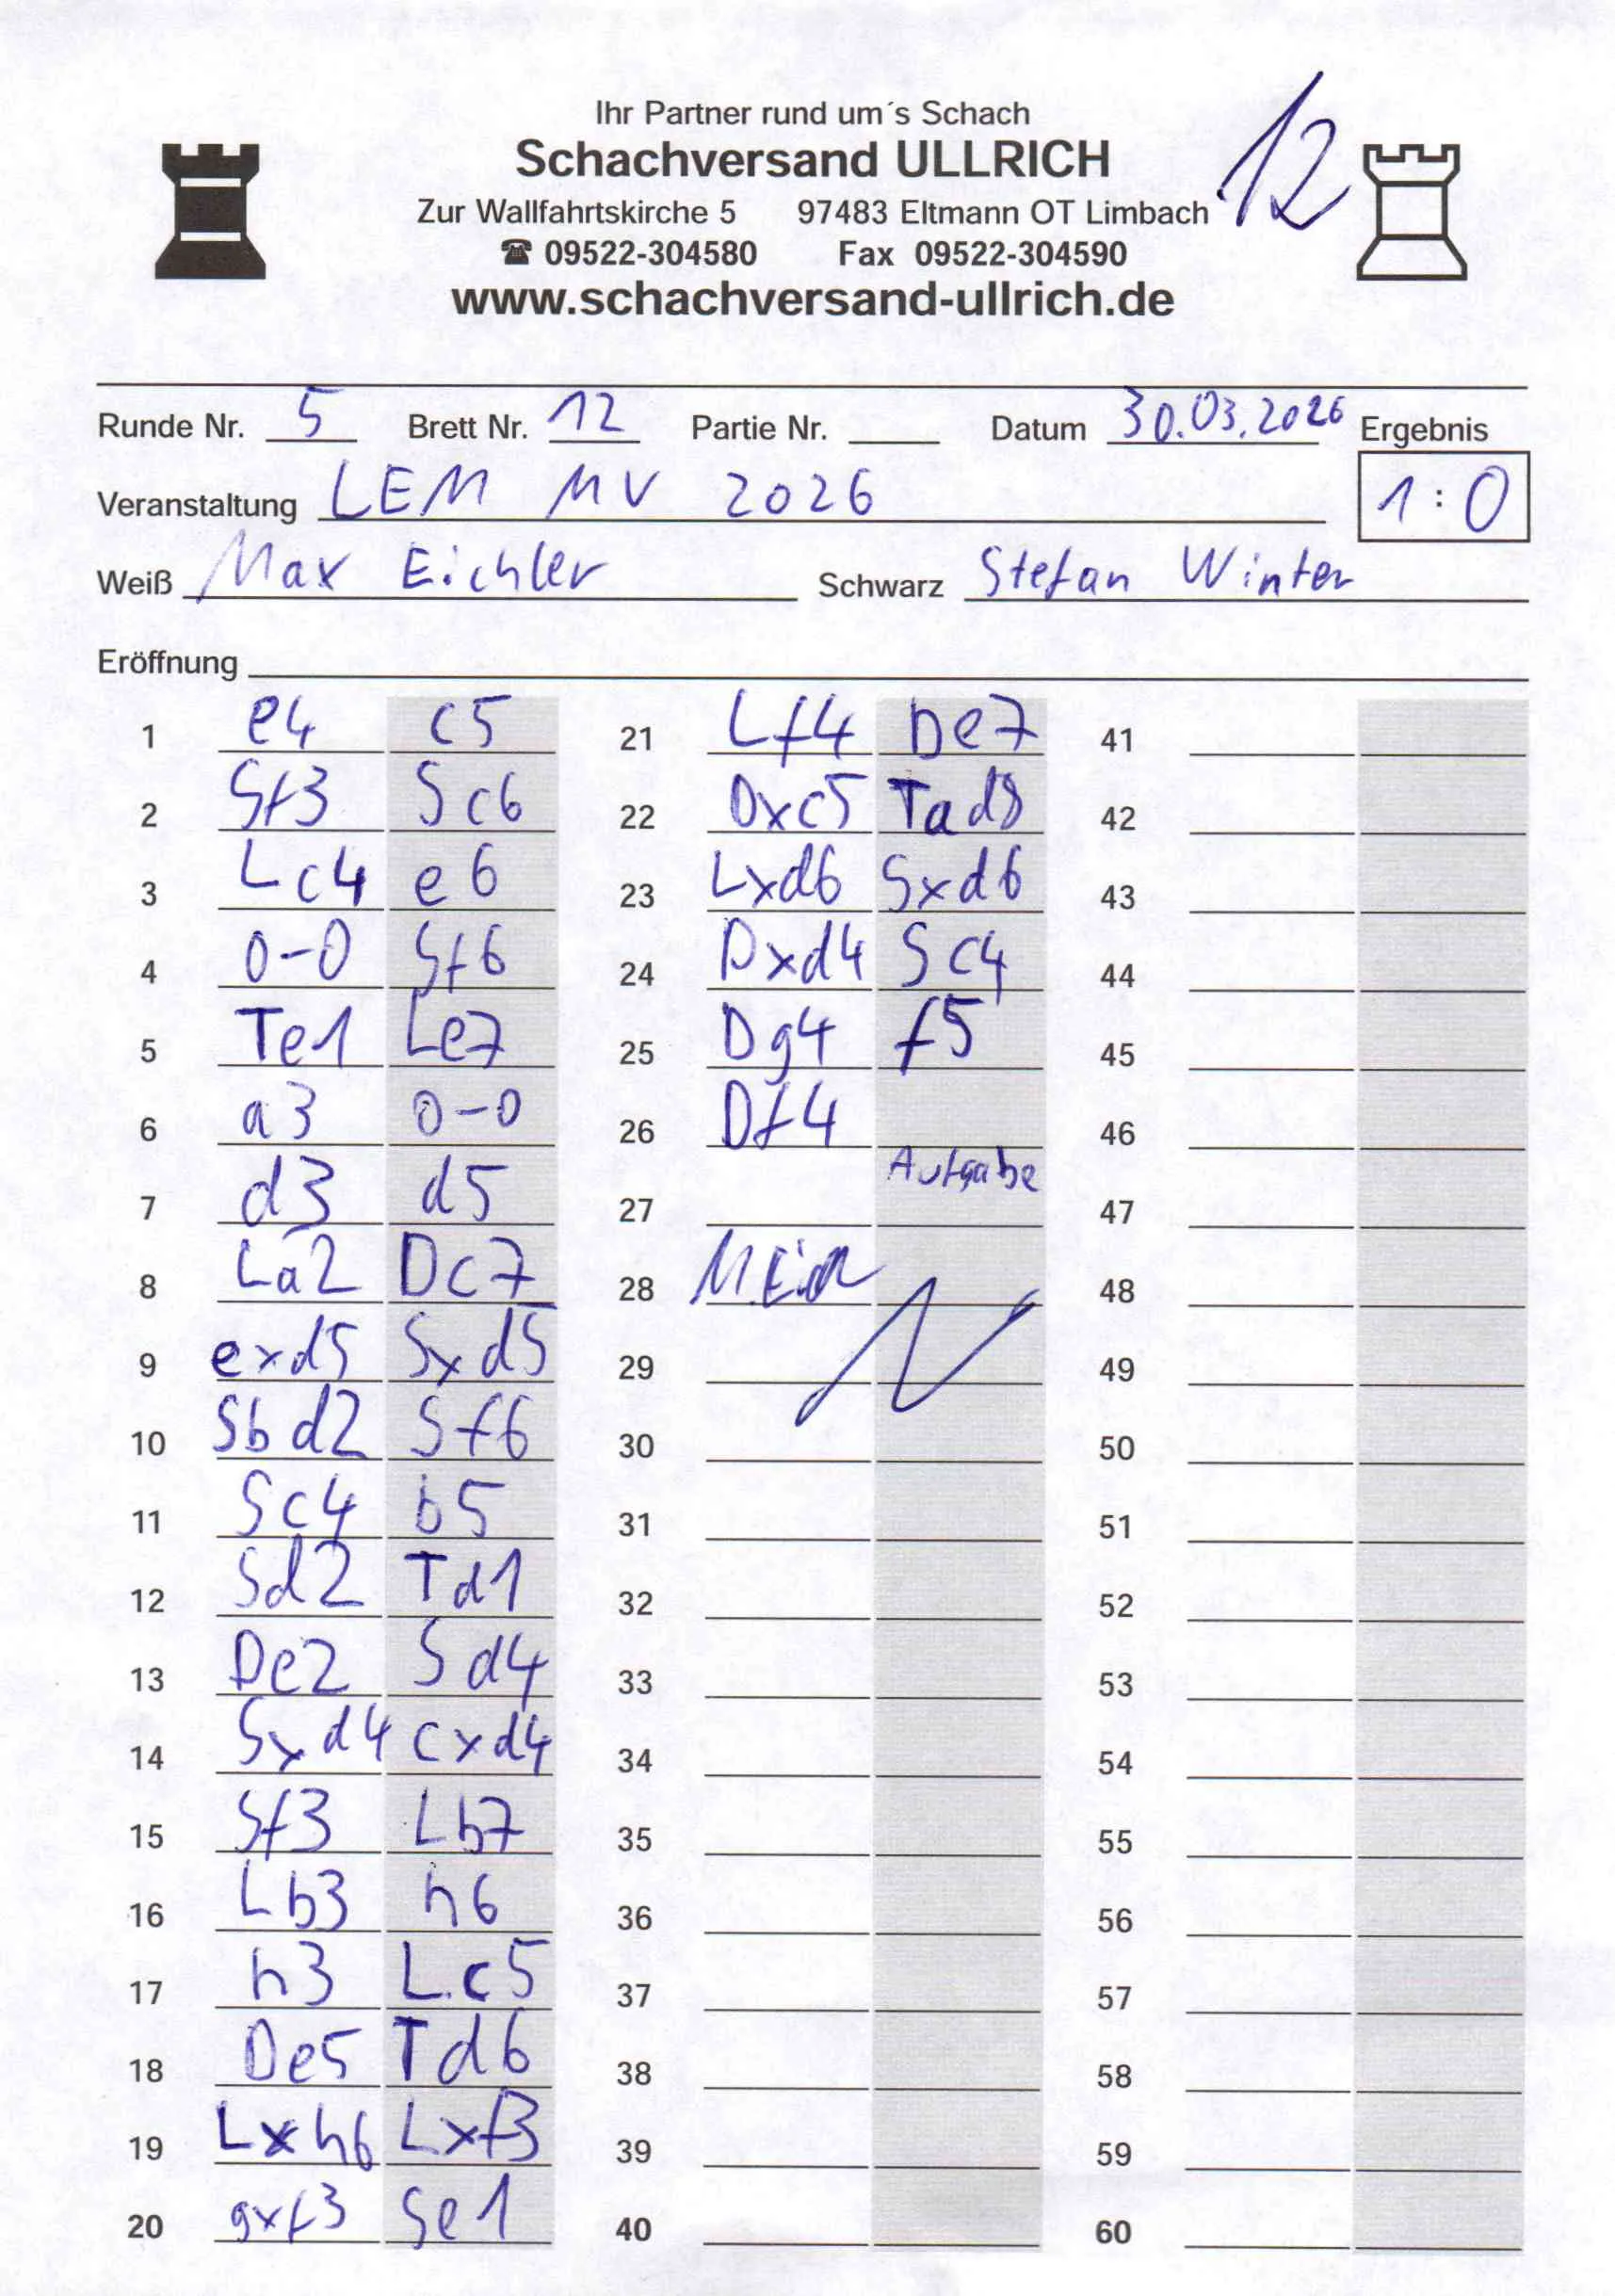 Ihr Partner rund um´s Schach
Schachversand ULLRICH
12
Zur Wallfahrtskirche 5 97483 Eltmann OT Limbach
☎ 09522-304580 Fax 09522-304590
www.schachversand-ullrich.de
Runde Nr. 5 Brett Nr. 12 Partie Nr. Datum 30.03.2026 Ergebnis
Veranstaltung LEM MV 2026 1:0
Weiß Max Eichler Schwarz Stefan Winter
Eröffnung
1 e4 c5
2 Sf3 Sc6
3 Lc4 e6
4 0-0 Sf6
5 Te1 Le7
6 a3 0-0
7 d3 d5
8 La2 Dc7
9 exd5 Sxd5
10 Sbd2 Sf6
11 Sc4 b5
12 Sd2 Td1
13 De2 Sd4
14 Sxd4 cxd4
15 Sf3 Lb7
16 Lb3 h6
17 h3 Lc5
18 De5 Td6
19 Lxh6 Lxf3
20 gxf3 Se1
21 Lf4 De7
22 Dxc5 Tad8
23 Lxd6 Sxd6
24 Dxd4 Sc4
25 Dg4 f5
26 Df4
Aufgabe
27
28
29
30
31
32
33
34
35
36
37
38
39
40
41
42
43
44
45
46
47
48
49
50
51
52
53
54
55
56
57
58
59
60